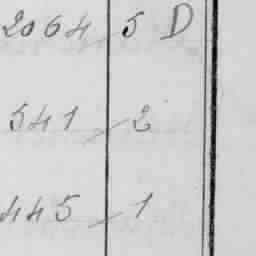 2064 5 D
541 2
445 1